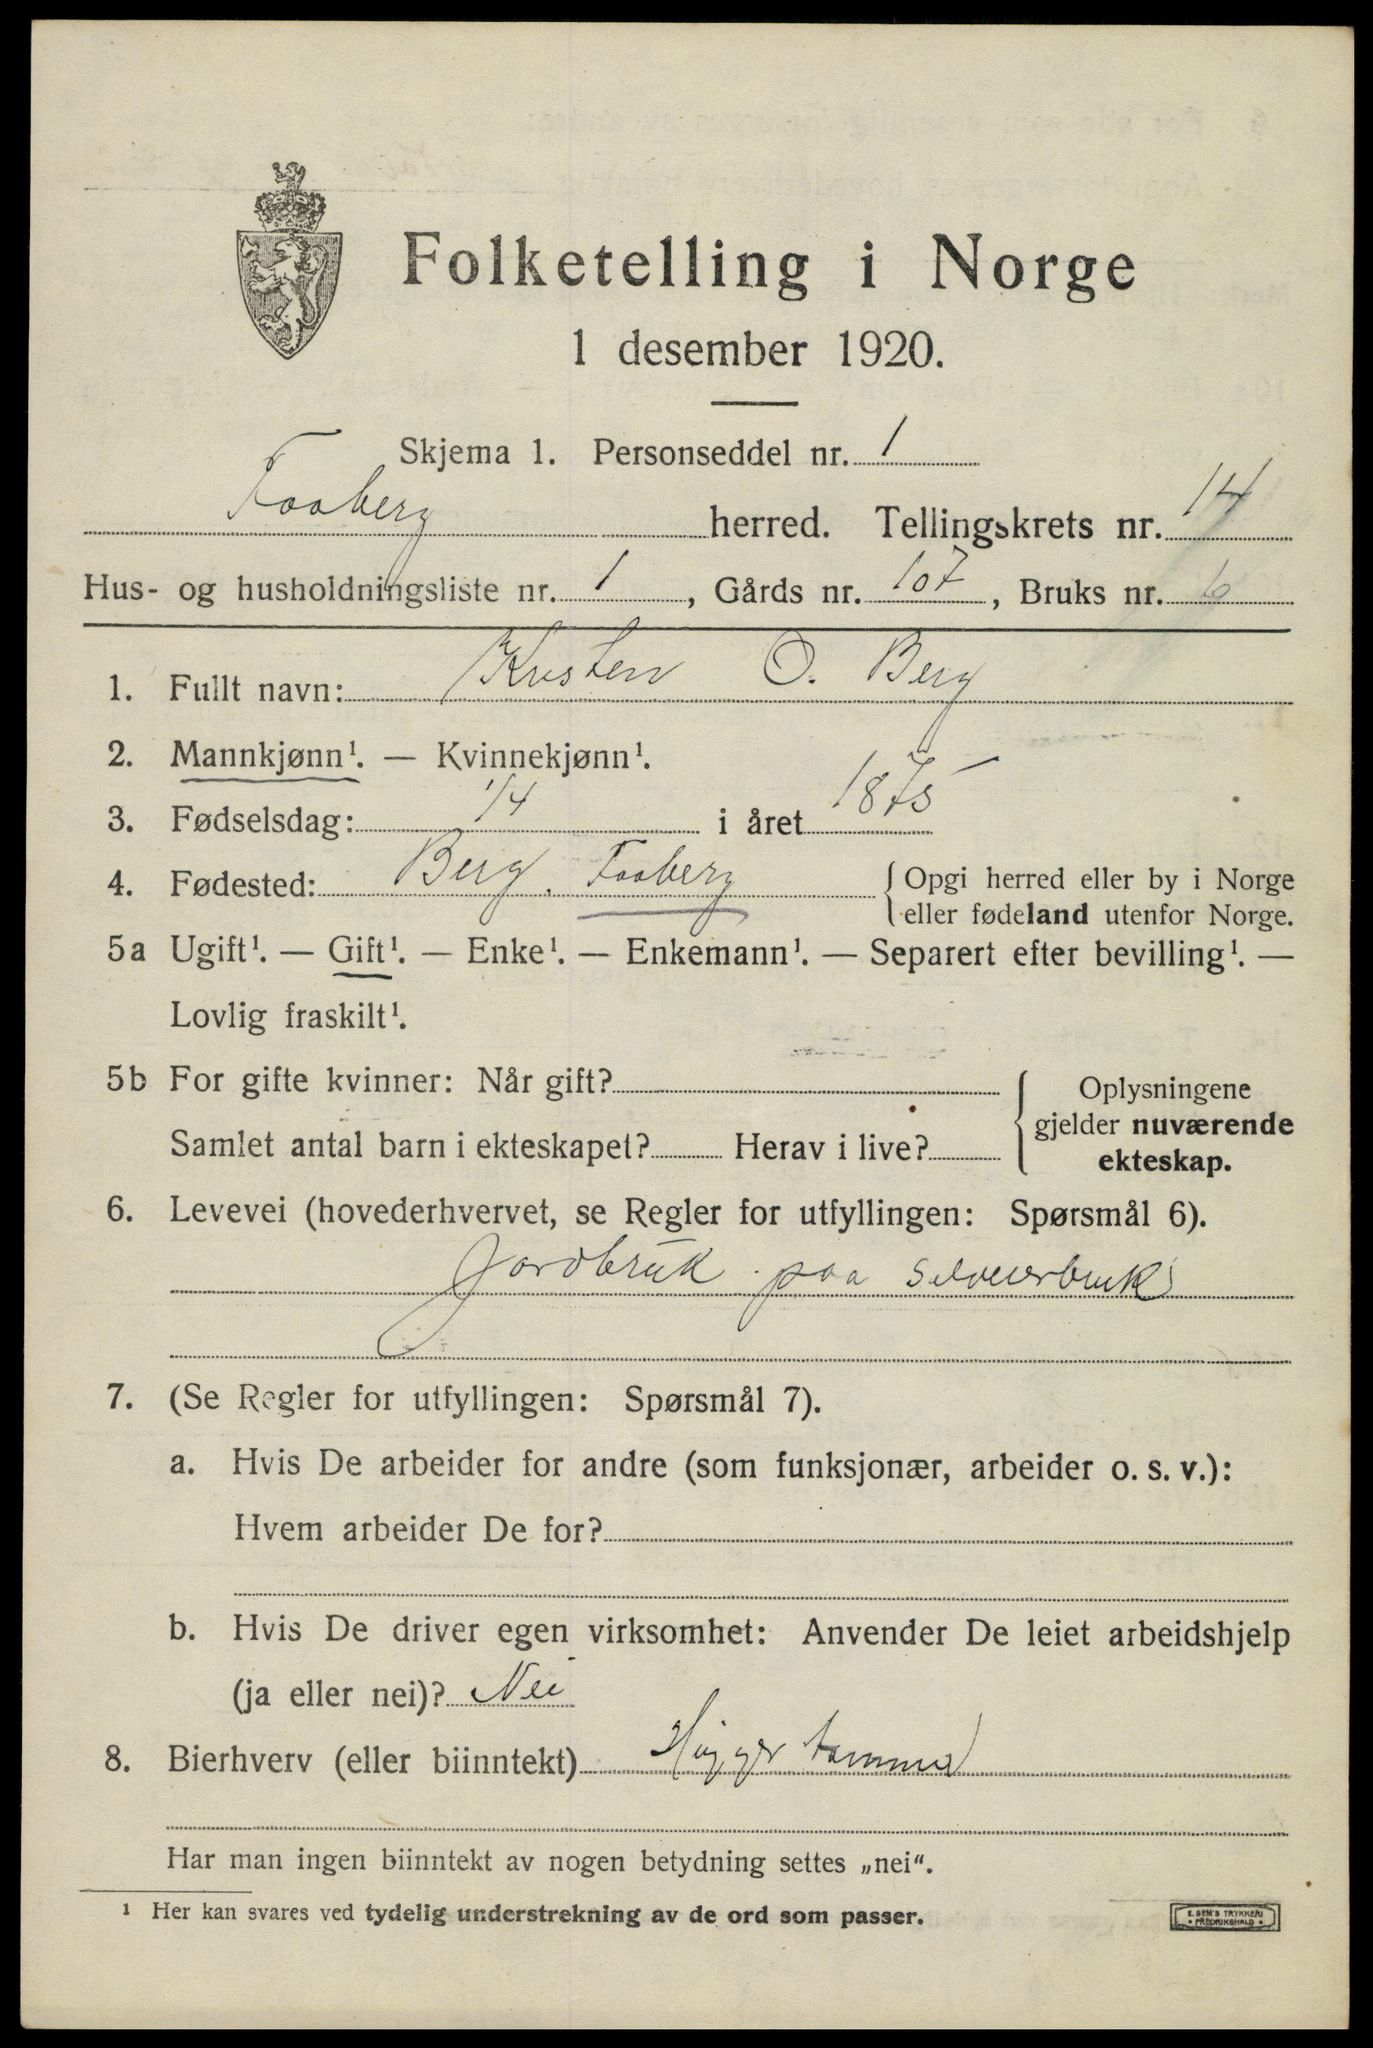 Folketelling i Norge
1 desember 1920.
Skjema 1. Personseddel nr. 1
Faaberg herred. Tellingskrets nr. 14
Hus- og husholdningsliste nr. 1, Gårds nr. 107, Bruks nr. 6
1. Fullt navn: Kristen O. Berg
2. Mannkjønn¹. — Kvinnekjønn¹.
3. Fødselsdag: 1/4 i året 1875
4. Fødested: Berg. Faaberg { Opgi herred eller by i Norge
eller fødeland utenfor Norge.
5a Ugift¹. — Gift¹. — Enke¹. — Enkemann¹. — Separert efter bevilling¹. —
Lovlig fraskilt¹.
5b For gifte kvinner: Når gift?
Samlet antal barn i ekteskapet? Herav i live?
Oplysningene
gjelder nuværende
ekteskap.
6. Levevei (hovederhvervet, se Regler for utfyllingen: Spørsmål 6).
Jordbruk paa selveierbruk
7. (Se Regler for utfyllingen: Spørsmål 7).
a. Hvis De arbeider for andre (som funksjonær, arbeider o. s. v.):
Hvem arbeider De for?
b. Hvis De driver egen virksomhet: Anvender De leiet arbeidshjelp
(ja eller nei)? Nei
8. Bierhverv (eller biinntekt) Hugger tømmer
Har man ingen biinntekt av nogen betydning settes „nei“.
¹ Her kan svares ved tydelig understrekning av de ord som passer.
E. SEM'S TRYKKERI
• FREDRIKSHALD •